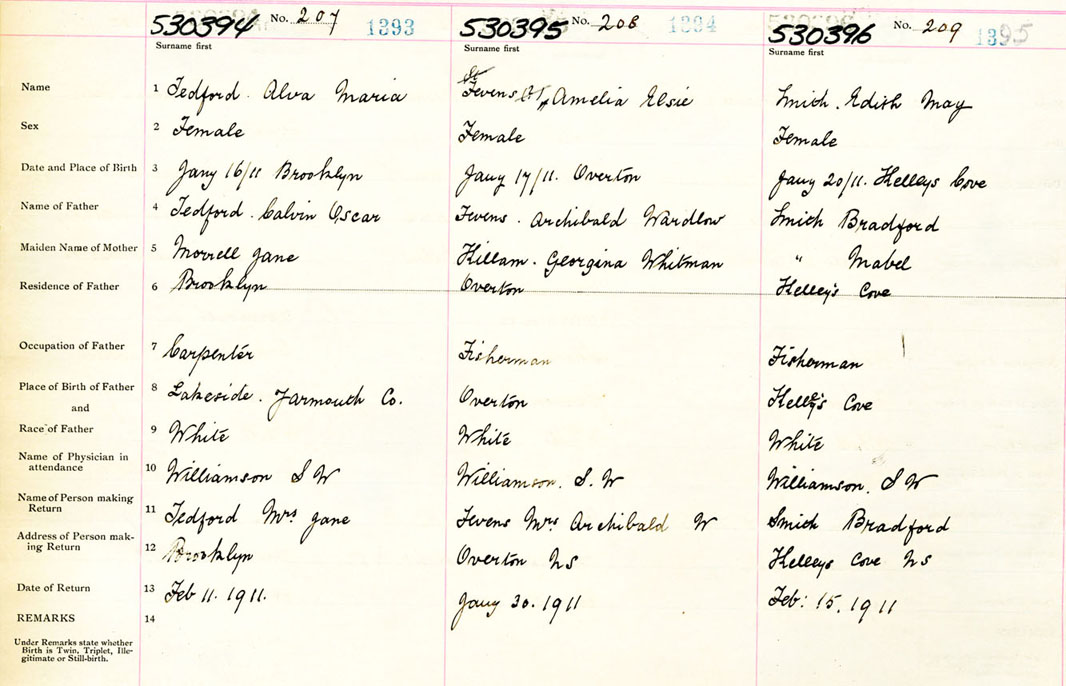 530394 No. 207 1393 530395 No. 208 1394 530396 No. 209 1395
Surname first Surname first Surname first
Name 1 Tedford. Alva Maria Amelia Elsie Smith. Edith May
Sex 2 Female Female Female
Date and Place of Birth 3 Jany 16/11 Brooklyn Jany 17/11. Overton Jany 20/11. Kelleys Cove
Name of Father 4 Tedford. Calvin Oscar Tevens. Archibald Wardlow Smith Bradford
Maiden Name of Mother 5 Morrell Jane Killam. Georgina Whitman " Mabel
Residence of Father 6 Brooklyn Overton Kelley's Cove
Occupation of Father 7 Carpenter Fisherman Fisherman
Place of Birth of Father 8 Lakeside. Yarmouth Co. Overton Kelley's Cove
and
Race of Father 9 White White White
Name of Physician in
attendance 10 Williamson S W Williamson. S. W Williamson. S W
Name of Person making
Return 11 Tedford Mrs Jane Tevens Mrs Archibald W Smith Bradford
Address of Person mak-
ing Return 12 Brooklyn Overton NS Kelleys Cove NS
Date of Return 13 Feb 11. 1911. Jany 30. 1911 Feb: 15. 1911
REMARKS 14
Under Remarks state whether
Birth is Twin, Triplet, Ille-
gitimate or Still-birth.